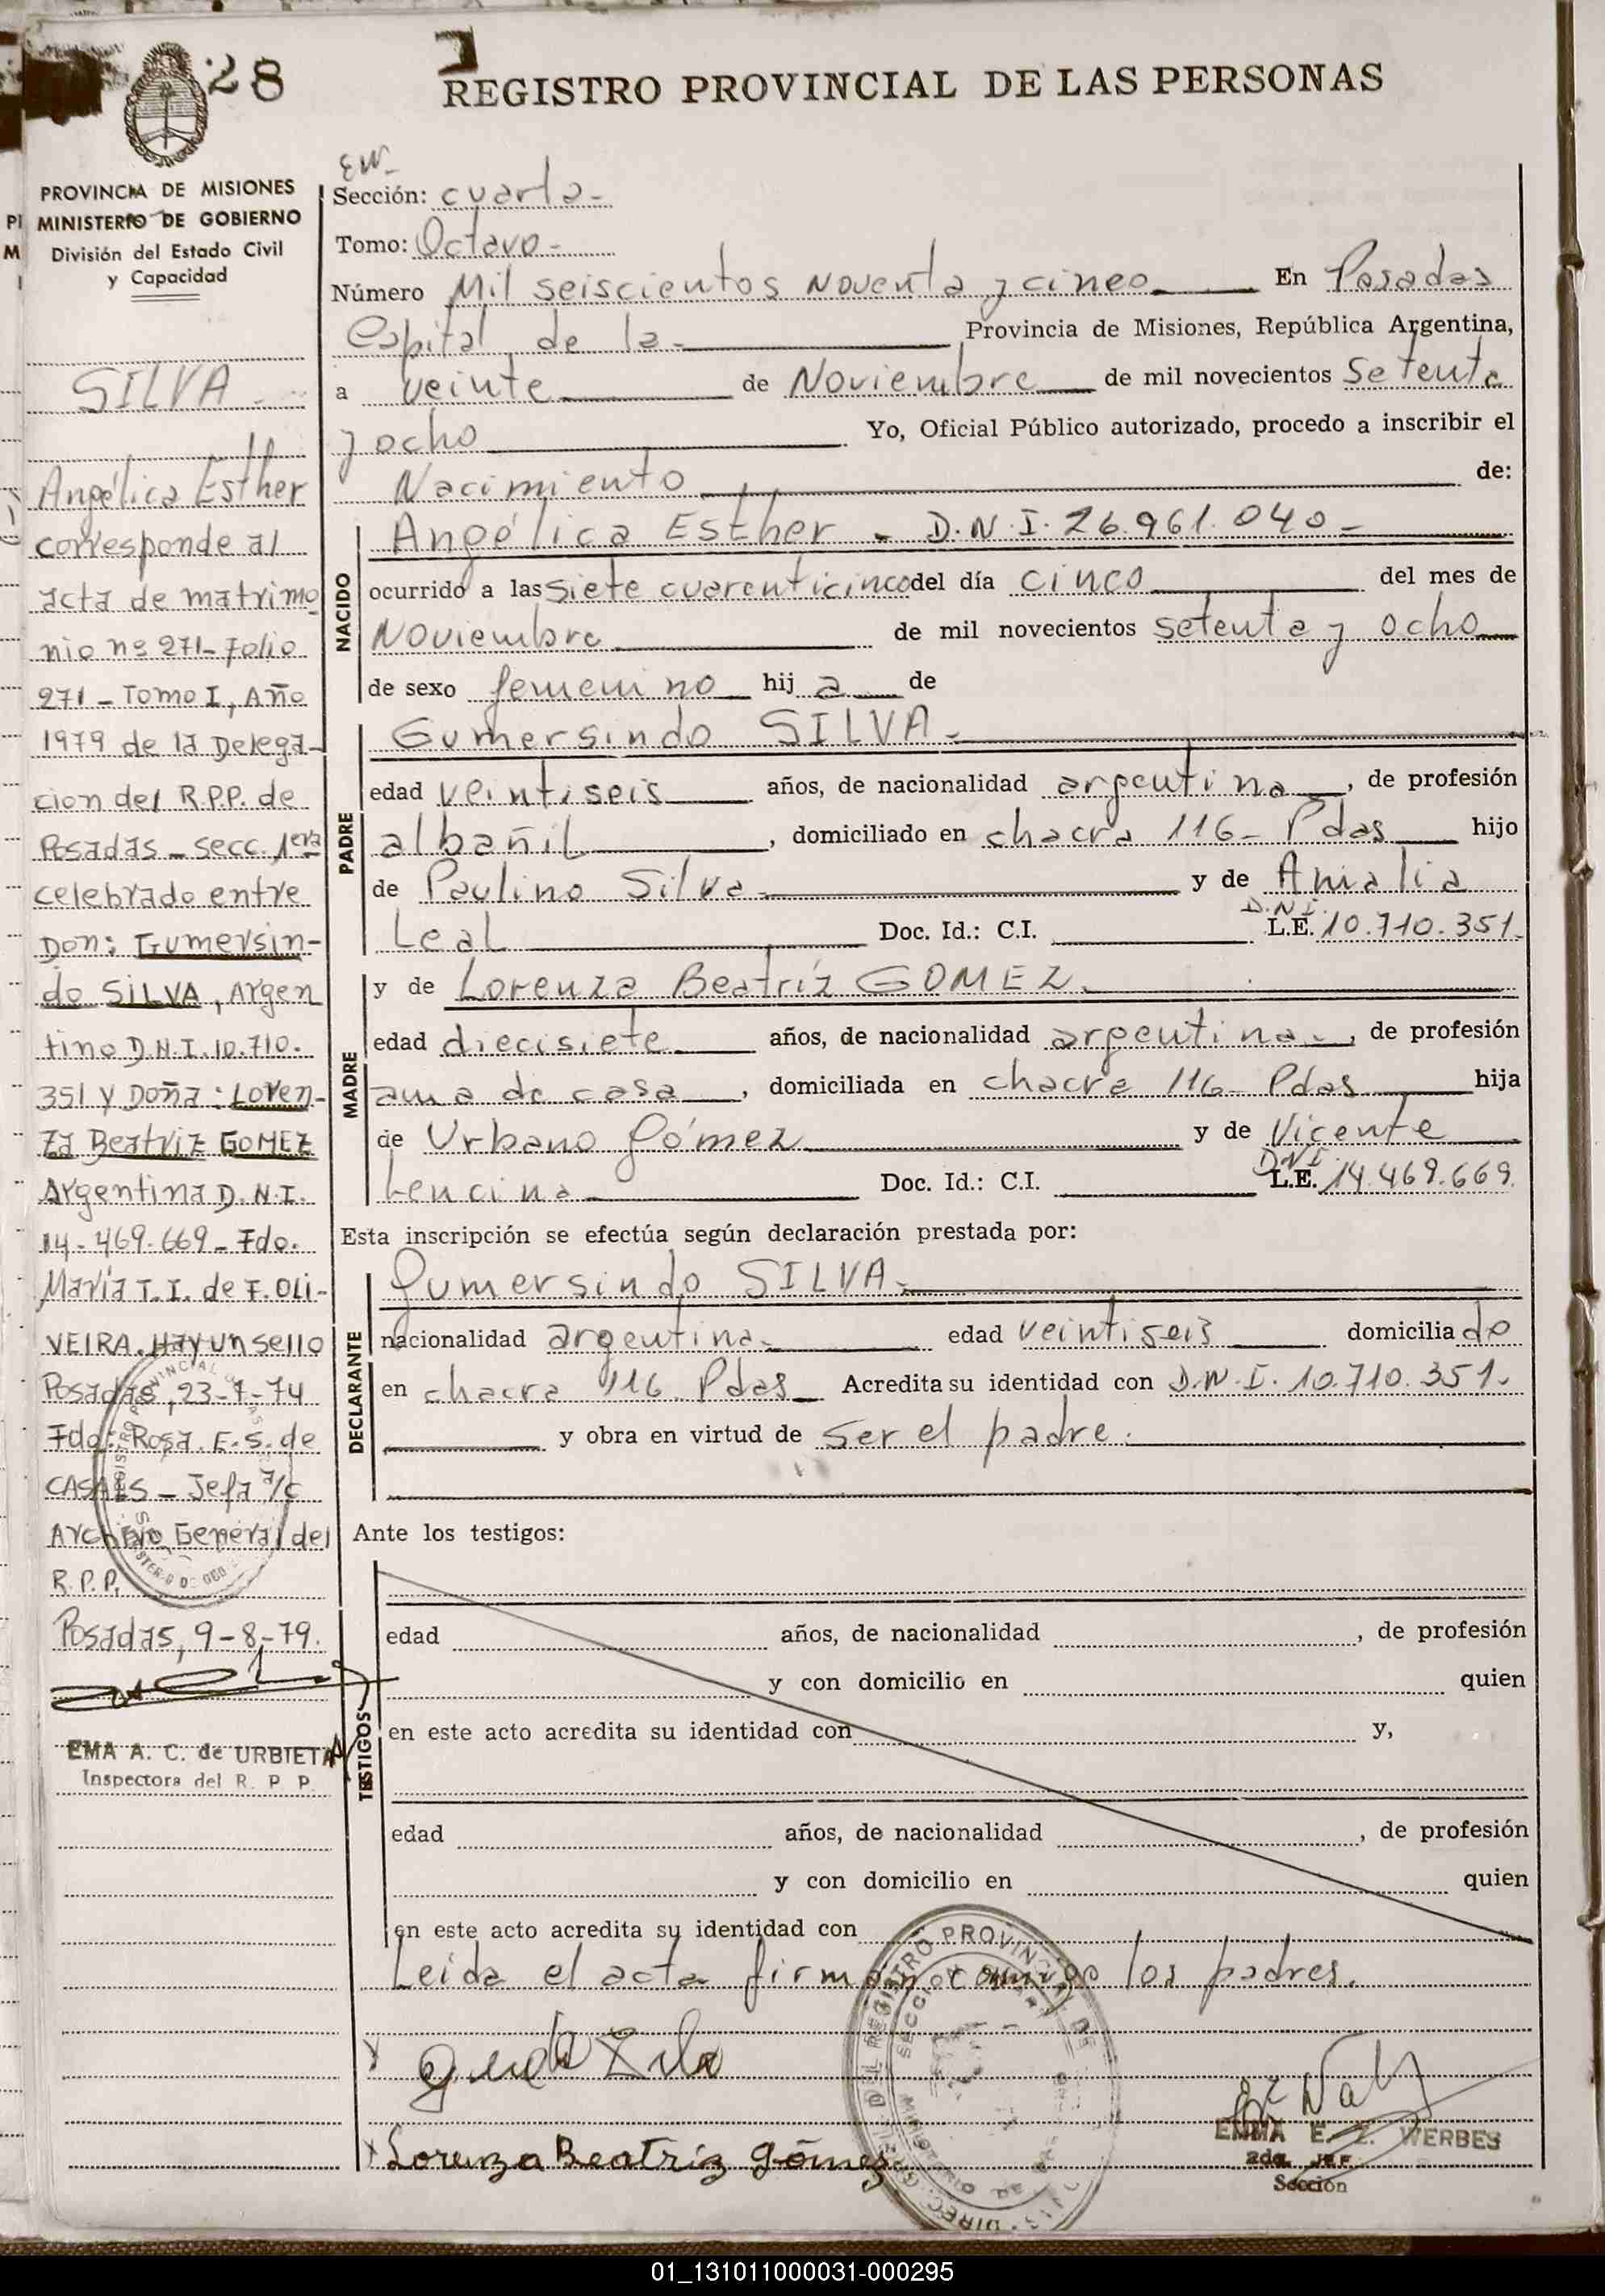 28
REGISTRO PROVINCIAL DE LAS PERSONAS
PROVINCIA DE MISIONES
MINISTERIO DE GOBIERNO
División del Estado Civil
y Capacidad
SILVA
Angélica Esther
corresponde al
acta de matrimo
nio nº 271-Folio
271-Tomo I, Año
1979 de la Delega-
cion del R.P.P. de
Posadas-secc. 1era
celebrado entre
Don: Gumersin-
do SILVA, Argen
tino D.N.I. 10.710.
351 y Doña: Loren-
za Beatriz GOMEZ
Argentina D.N.I.
14-469-669-Fdo.
María T. I. de F. OLI-
VEIRA. Hay un sello
Posadas, 23-7-74
Fdo: Rosa E. S. de
CASALS - Jefa a/c
Archivo General del
R.P.P.
Posadas, 9-8-79.
EMA A. C. de URBIETA
Inspectora del R. P. P.
Sección: cuarta-
Tomo: Octavo-
Número Mil seiscientos Noventa y cinco En Posadas
Capital de la- Provincia de Misiones, República Argentina,
a veinte de Noviembre de mil novecientos setenta
y ocho Yo, Oficial Público autorizado, procedo a inscribir el
Nacimiento de:
NACIDO
Angélica Esther - D.N.I. 26.961.040-
ocurrido a las siete cuarenticinco del día cinco del mes de
Noviembre de mil novecientos setenta y ocho
de sexo femenino hij a de
PADRE
Gumersindo SILVA-
edad veintiseis años, de nacionalidad argentina, de profesión
albañil, domiciliado en chacra 116- Pdas hijo
de Paulino Silva y de Amalia
Leal Doc. Id.: C.I. D.N.I. L.E. 10.710.351.
MADRE
y de Lorenza Beatríz GOMEZ.
edad diecisiete años, de nacionalidad argentina, de profesión
ama de casa, domiciliada en chacra 116- Pdas hija
de Urbano Gómez y de Vicente
Lencina Doc. Id.: C.I. D.N.I. L.E. 14.469.669.
Esta inscripción se efectúa según declaración prestada por:
DECLARANTE
Gumersindo SILVA-
nacionalidad argentina- edad veintiseis domicilia do
en chacra 116 Pdas Acredita su identidad con D.N.I. 10.710.351.
y obra en virtud de ser el padre.
Ante los testigos:
TESTIGOS
edad años, de nacionalidad , de profesión
y con domicilio en quien
en este acto acredita su identidad con y,
edad años, de nacionalidad , de profesión
y con domicilio en quien
en este acto acredita su identidad con
Leida el acta firman conmigo los padres.
Lorenza Beatríz Gómez
EMMA E. Z. WERBES
Sección
01_131011000031-000295